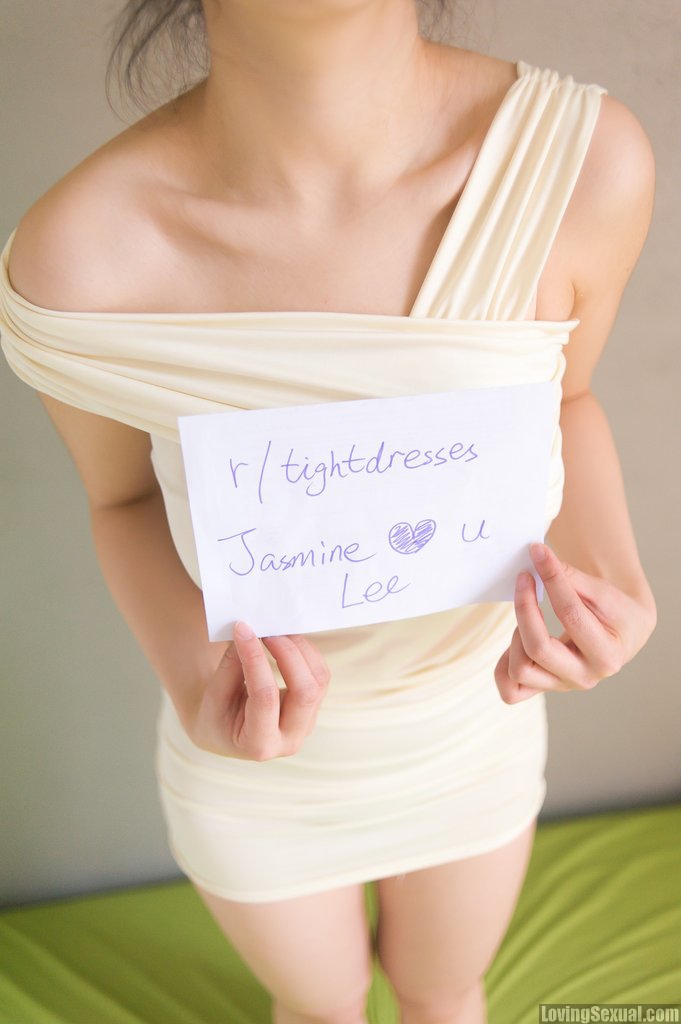 r/tightdresses
Jasmine ♥ u
Lee
LovingSexual.com